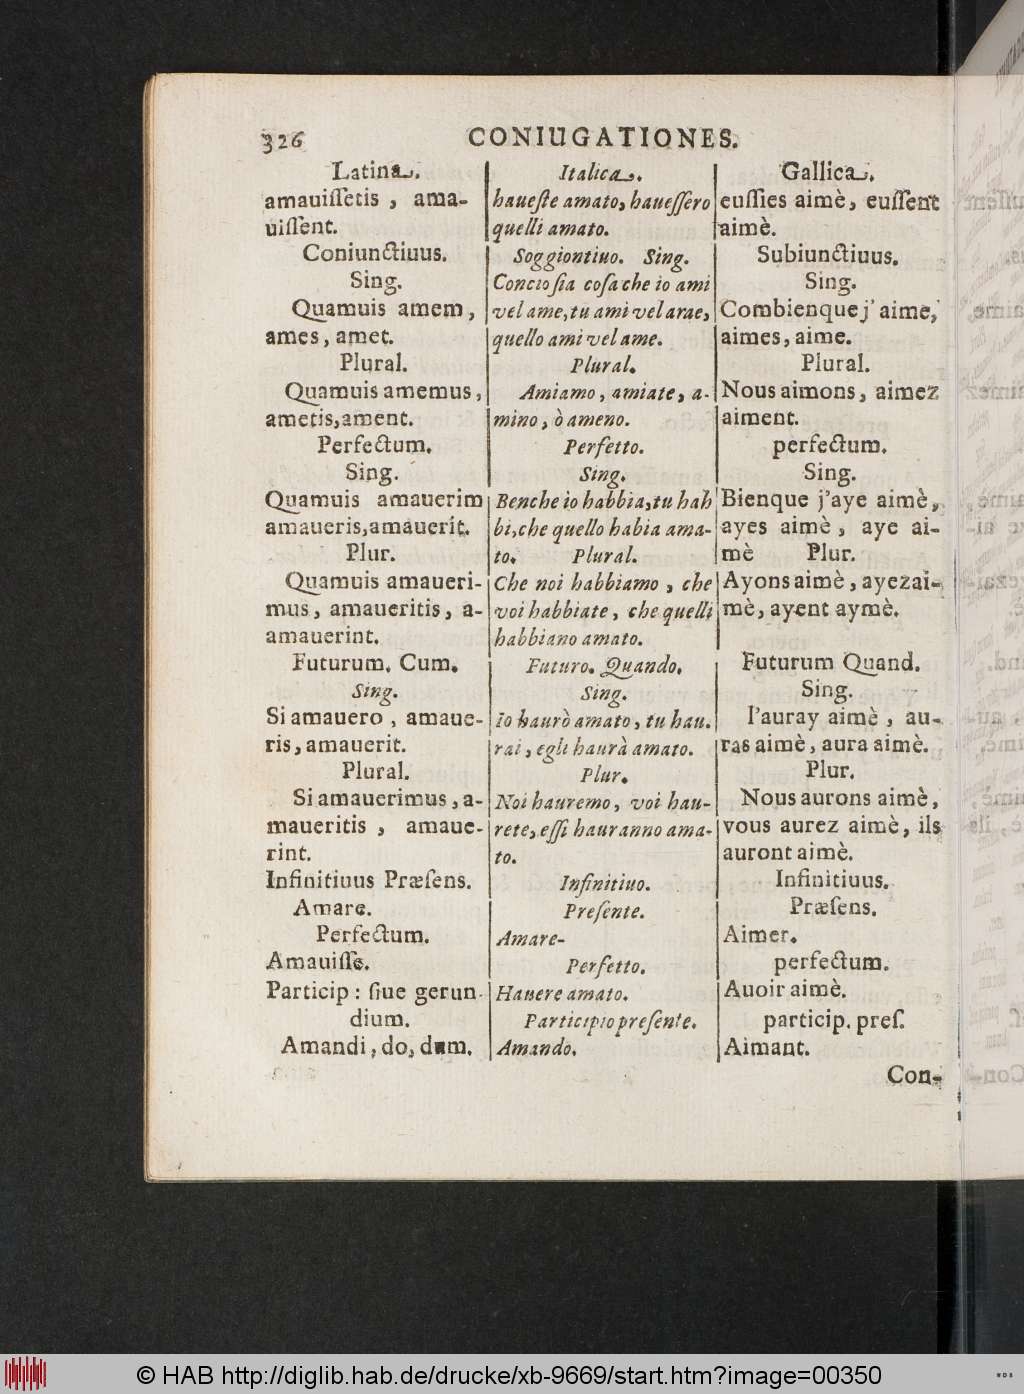 326 CONIUGATIONES.
Latina.
amauiſſetis , ama-
uiſſent.
Coniunctiuus.
Sing.
Quamuis amem ,
ames , amet.
Plural.
Quamuis amemus ,
ametis, ament.
Perfectum.
Sing.
Quamuis amauerim
amaueris, amauerit.
Plur.
Quamuis amaueri-
mus , amaueritis , a-
amauerint.
Futurum. Cum.
Sing.
Si amauero , amaue-
ris , amauerit.
Plural.
Si amauerimus , a-
maueritis , amaue-
rint.
Infinitiuus Præſens.
Amare.
Perfectum.
Amauiſſe.
Particip : ſiue gerun-
dium.
Amandi , do, dum.
Italica.
haueſte amato, haueſſero
quelli amato.
Soggiontiuo. Sing.
Concioſia coſa che io ami
vel ame, tu ami vel arae,
quello ami vel ame.
Plural.
Amiamo , amiate , a-
mino , ò ameno.
Perfetto.
Sing.
Benche io habbia, tu hab
bi, che quello habia ama-
to. Plural.
Che noi habbiamo , che
voi habbiate , che quelli
habbiano amato.
Futuro. Quando.
Sing.
Io haurò amato , tu hau.
rai , egli haurà amato.
Plur.
Noi hauremo , voi hau-
rete, eſſi hauranno ama-
to.
Infinitiuo.
Preſente.
Amare-
Perfetto.
Hauere amato.
Participio preſente.
Amando.
Gallica.
euſſies aimè, euſſent
aimè.
Subiunctiuus.
Sing.
Combienque j' aime,
aimes, aime.
Plural.
Nous aimons , aimez
aiment.
perfectum.
Sing.
Bienque j'aye aimè,
ayes aimè , aye ai-
mè Plur.
Ayons aimè , ayez ai-
mè, ayent aymè.
Futurum Quand.
Sing.
I'auray aimè , au-
ras aimè , aura aimè.
Plur.
Nous aurons aimè,
vous aurez aimè, ils
auront aimè.
Infinitiuus.
Præſens.
Aimer.
perfectum.
Auoir aimè.
particip. preſ.
Aimant.
Con-
© HAB http://diglib.hab.de/drucke/xb-9669/start.htm?image=00350